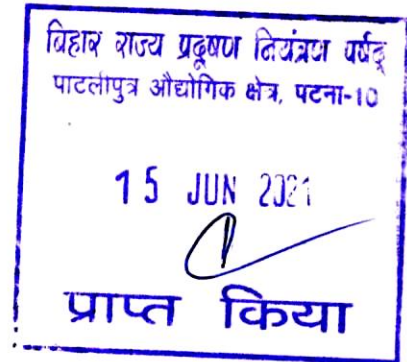 बिहार राज्य प्रदूषण नियंत्रण पर्षद्
पाटलीपुत्र औद्योगिक क्षेत्र, पटना-10
15 JUN 2021
प्राप्त किया